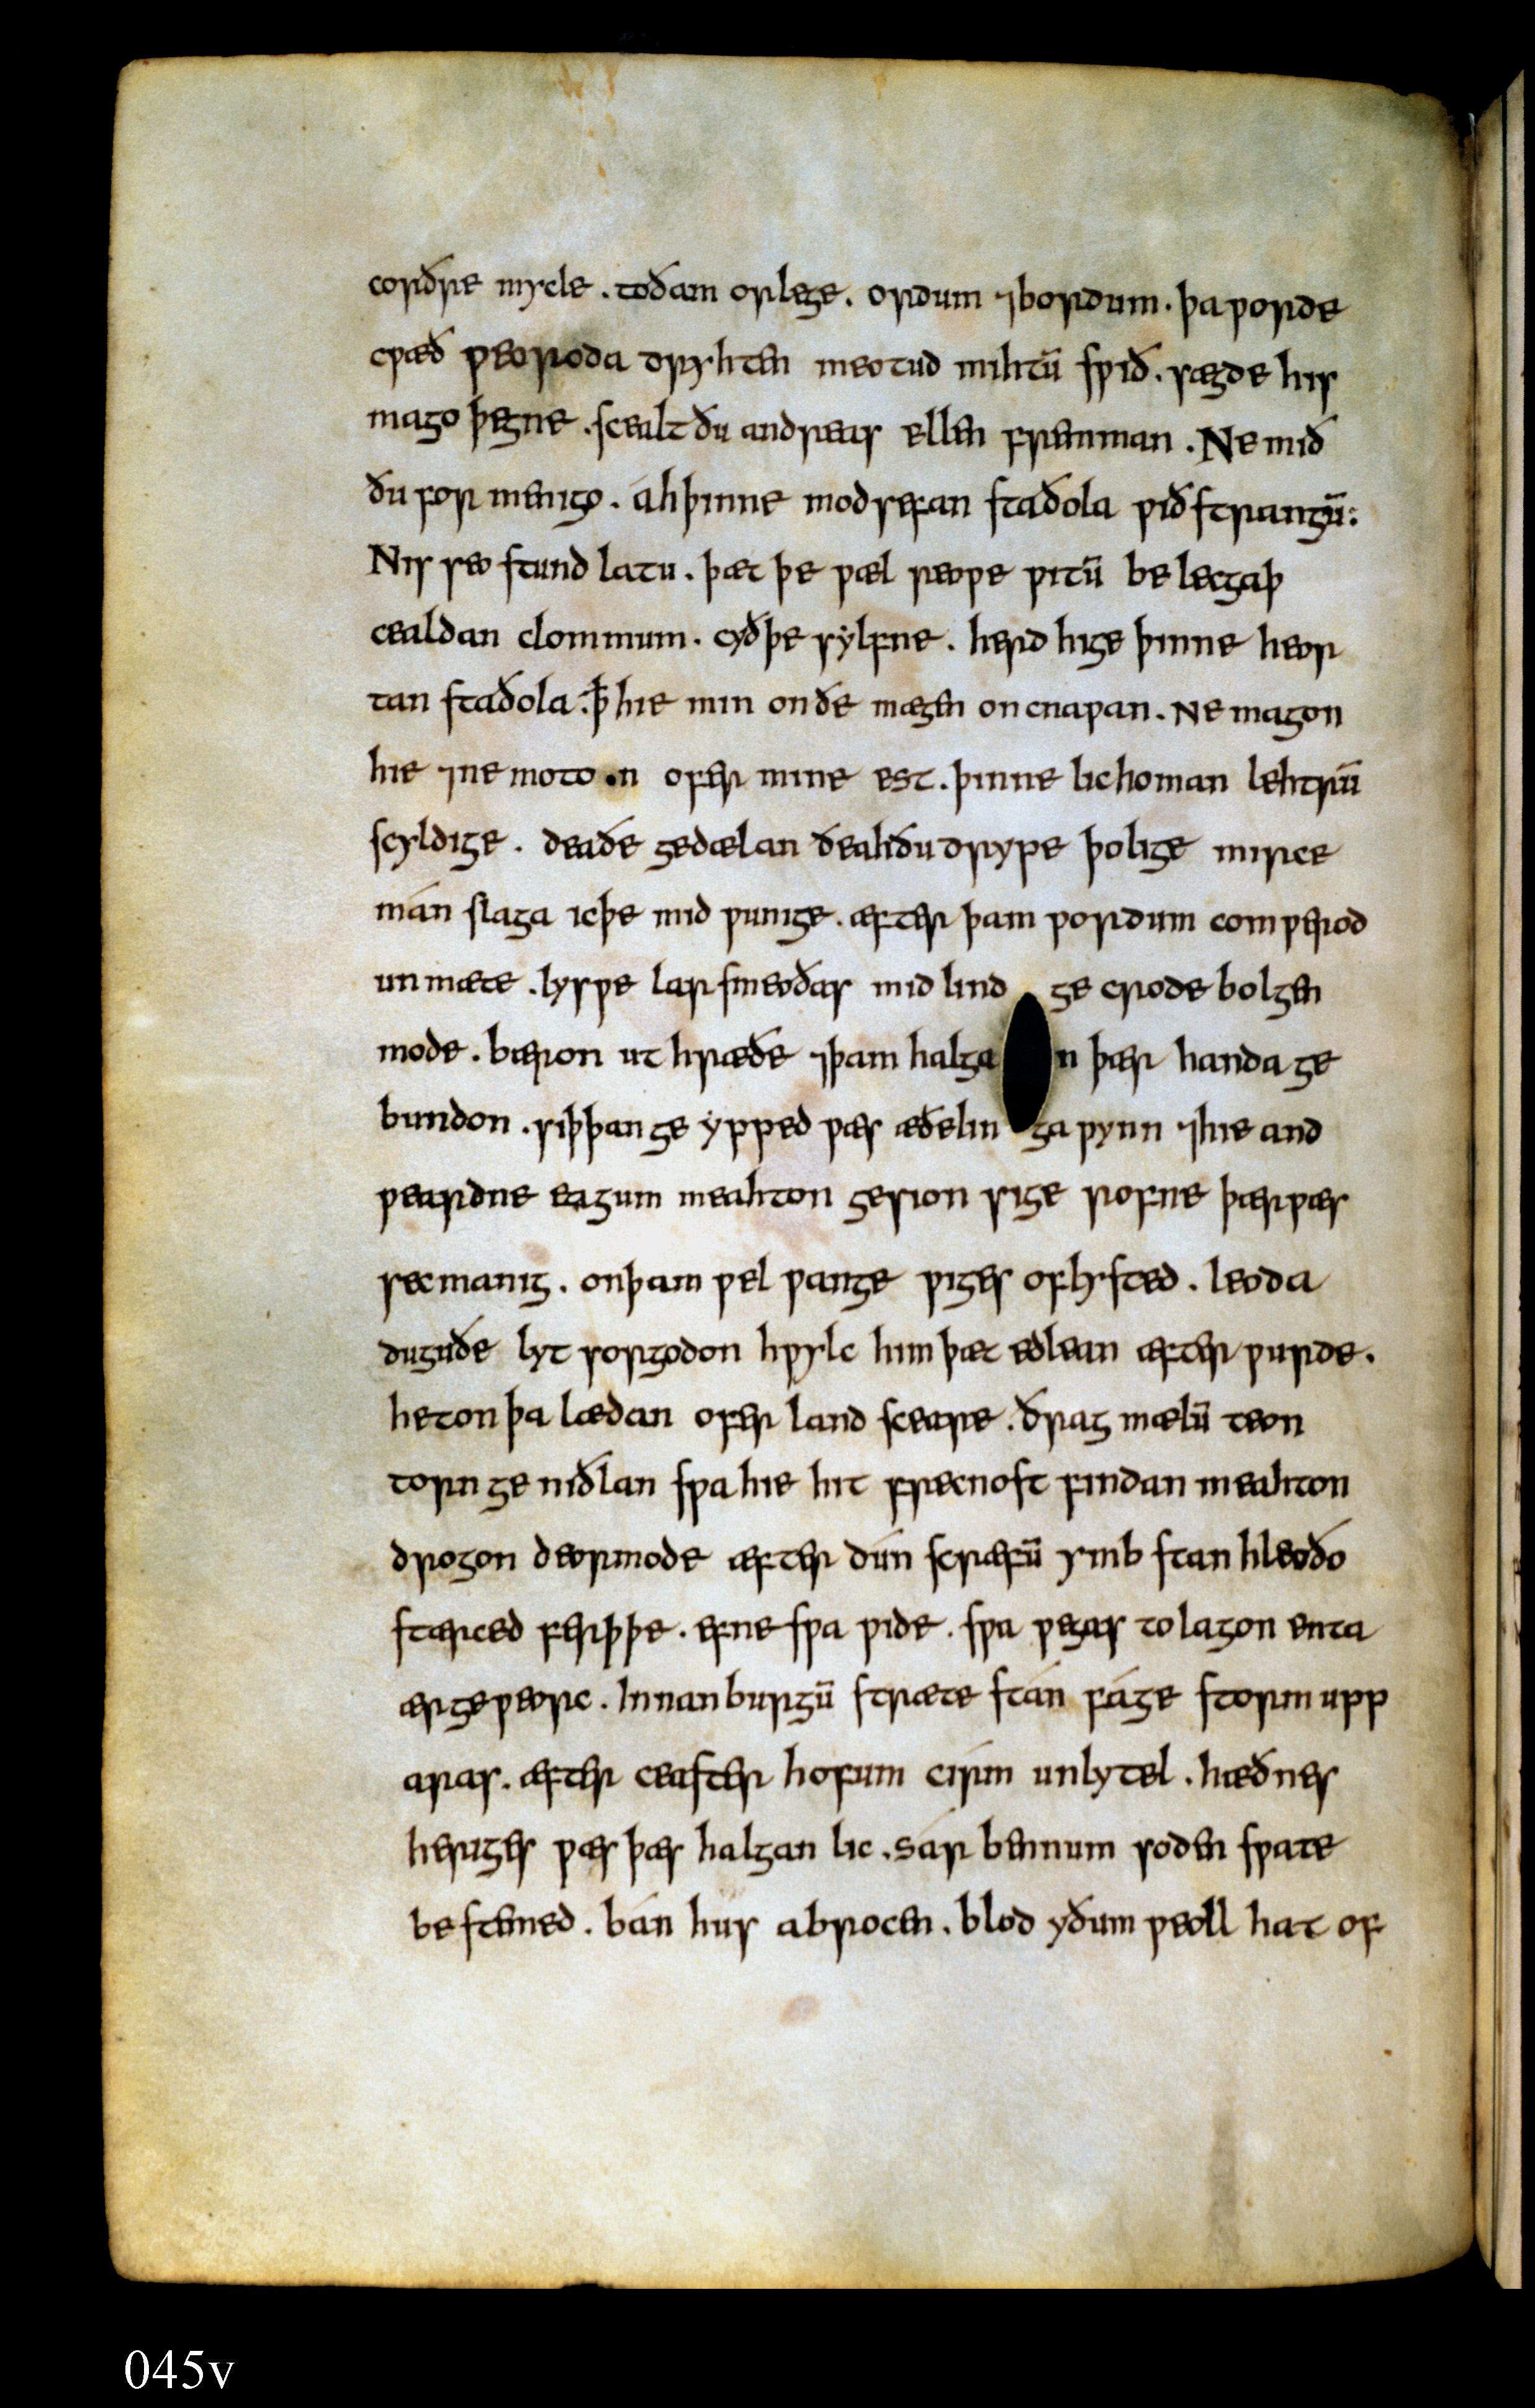 corðre mycle . toðam orlege . ordum ⁊bordum . þaƿorde
cƿæð ƿeoroda dryhten meotud mihtū sƿið . sægde his
mago þegne . scealt ðu andreas ellen fremman . Ne mið
ðu for menigo . áhþinne modsefan staðola ƿið strangū :
Nis seo stund latu . þæt þe ƿæl reoƿe ƿitū be lecgaþ
cealdan clommum . cyð þe sylfne . herd hige þinne heor
tan staðola . ꝥ hie min on ðe mægen on cnaƿan . Ne magon
hie ⁊ne moto n ofer mine est . þinne lichoman lehtrū
scyldige . deaðe gedælan ðeahðu dryƿe þolige mirce
mán slaga icþe mid ƿunige . æfter þam ƿordum com ƿerod
un mæte . lysƿe lar smeoðas mid lind ge crode bolgen
mode . bæron ut hræðe ⁊þam halga n þær handa ge
bundon . siþþan ge ypped ƿæs æðelin ga ƿynn ⁊hie and
ƿeardne eagum meahton gesion sige rofne þær ƿæs
sec manig . onþam ƿel ƿange ƿiges oflysted . leoda
duguðe lyt sorgodon hƿylc him þæt edlean æfter ƿurde .
heton þa lædan ofer land sceare . ðrag mælū teon
torn ge niðlan sƿa hie hit frecnost findan meahton
drogon deormode æfter dún scræfū ymb stan hleoðo
stærced ferþþe . efne sƿa ƿide . sƿa ƿegas to lagon enta
ærgeƿeorc . Innan burgū stræte stán fáge storm upp
aras . æfter ceaster hofum cirm unlytel . hæðnes
heriges ƿæs þæs halgan lic . sár bennum soden sƿate
be stemed . bán hús abrocen . blod yðum ƿeoll hat of
045v